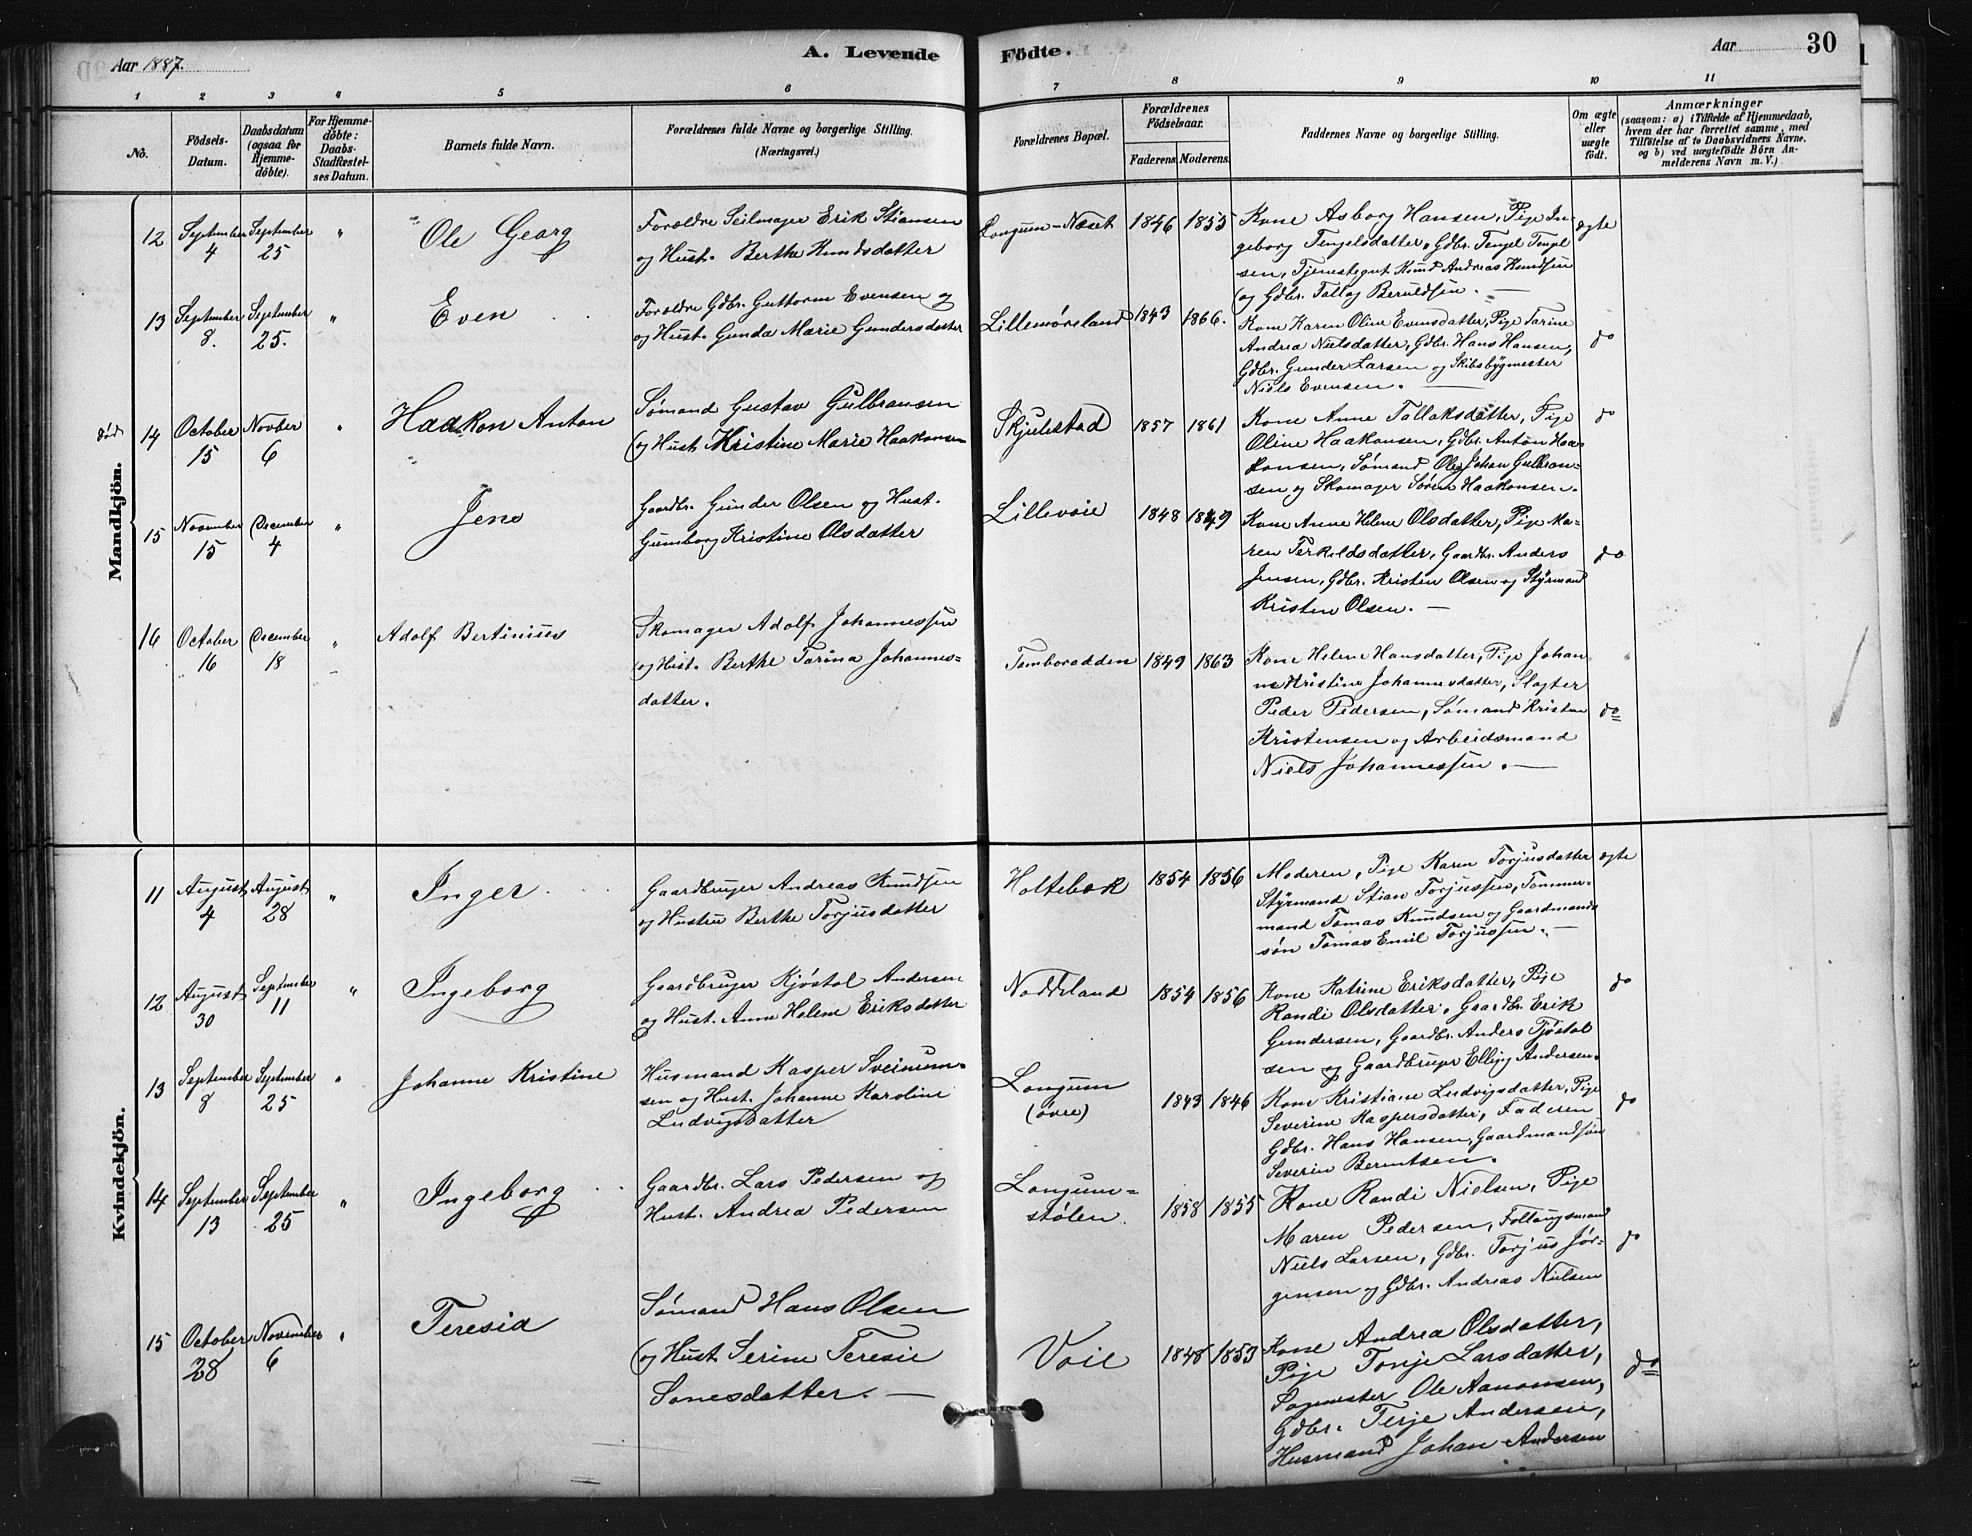 Aar 1887.
A. Levende Födte.
Aar 30
1 2 3 4 5 6 7 8 9 10 11
No.
Födsels-
Datum.
Daabsdatum
(ogsaa for
Hjemme-
döbte).
For Hjemme-
döbte:
Daabs-
Stadfæstel-
ses Datum.
Barnets fulde Navn.
Forældrenes fulde Navne og borgerlige Stilling.
(Næringsvei.)
Forældrenes Bopæl.
Forældrenes
Födselsaar.
Faderens Moderens.
Faddernes Navne og borgerlige Stilling.
Om ægte
eller
uægte
födt.
Anmærkninger
(saasom: a) i Tilfælde af Hjemmedaab,
hvem der har forrettet samme, med
Tilföielse af to Daabsvidners Navne.
og b) ved uægtefödte Börn An-
melderens Navn m. V.)
Mandkjön.
12 September 4 September 25 " Ole Georg
Forældre Seilmager Erik Stiansen
og Hust. Berthe Knudsdatter
Longum-Næset 1846 1855
Kone Asborg Hansen, Pige In-
geborg Tengelsdatter, Gdbr. Tengel Tengel
sen, Tjenestegut Knud Andreas Knudsen
og Gdbr. Tallag Beruldsen. —
ægte
13 September 8. September 25. " Even
Forældre Gdbr. Guttorm Evensen og
og Hust. Gunda Marie Gundersdatter
Lillemøreland 1843 1866.
Kone Karen Oline Evensdatter, Pige Tarine
Andrea Nielsdatter, Gdbr. Hans Hansen,
Gdbr. Gunder Larsen og Skibsbygmester
Niels Evensen. —
do
død 14 October 15 Novber 6 " Haakon Anton
Sømand Gustav Gulbransen
og Hust. Kristine Marie Haakonsen
Skjulestad 1857 1861
Kone Anne Tallaksdatter, Pige
Oline Haakonsen, Gdbr. Anton Haa-
konsen, Sømand Ole Johan Gulbran-
sen og Skomager Søren Haakonsen.
do
15 November 15 December 4 " Jens
Gaardbr. Gunder Olsen og Hust.
Gumborg Kristine Olsdatter
Lillevoie 1848 1849
Kone Anne Helene Olsdatter, Pige Ma-
ren Terkeldsdatter, Gaardbr. Anders
Jensen, Gdbr. Kristen Olsen og Styrmand
Kristen Olsen. —
do
16 October 16 December 18 " Adolf Bertinius
Skomager Adolf Johannessen
og Hust. Berthe Tarina Johannes-
datter.
Tamboradden 1849 1863
Kone Helene Hansdatter, Pige Johan
ne Kristine Johannesdatter, Slagter
Peder Pedersen, Sømand Kristen
Kristensen og Arbeidsmand
Niels Johannessen. —
do
Kvindekjön.
11 August 4 August 28 " Inger
Gaardbruger Andreas Knudsen
og Hustru Berthe Torjusdatter
Holtebæk 1854 1856
Moderen, Pige Karen Torjusdatter
Styrmand Stian Torjussen, Tømmer-
mand Tomas Knudsen og Gaardmands
søn Tomas Emil Torjussen. —
ægte
12 August 30 September 11 " Ingeborg
Gaardbruger Kjøstol Andersen
og Hust. Anne Helene Eriksdatter
Noddeland 1854 1856
Kone Katrine Eriksdatter, Pige
Randi Olsdatter, Gaardbr. Erik
Gundersen, Gaardbr. Anders Tjøstol
sen og Gaardbruger Elling Andersen.
do
13 September 8 September 25 " Johanne Kristine
Husmand Kasper Sveinum-
sen og Hust. Johanne Karoline
Ludvigsdatter
Longum
(øvre)
1843 1846
Kone Kristiane Ludvigsdatter, Pige
Severine Kaspersdatter, Faderen
Gdbr. Hans Hansen, Gaardmandsøn
Severin Berentsen.
do
14 September 13 September 25 " Ingeborg
Gaardbr. Lars Pedersen og
Hust. Andrea Pedersen
Longum-
stølen.
1858 1855
Kone Randi Nielsen, Pige
Maren Pedersen, Føllaugsmand
Niels Larsen, Gdbr. Torjus Jør-
gensen og Gdbr. Andreas Nielsen
do
15 October 28 November 6 " Teresia
Sømand Hans Olsen
og Hust. Serine Teresie
Sonesdatter. —
Voie 1848 1853
Kone Andrea Olsdatter,
Pige Tonje Larsdatter,
Sagmester Ole Aanonsen,
Gdbr. Terje Andersen,
Husmand Johan Andersen
do